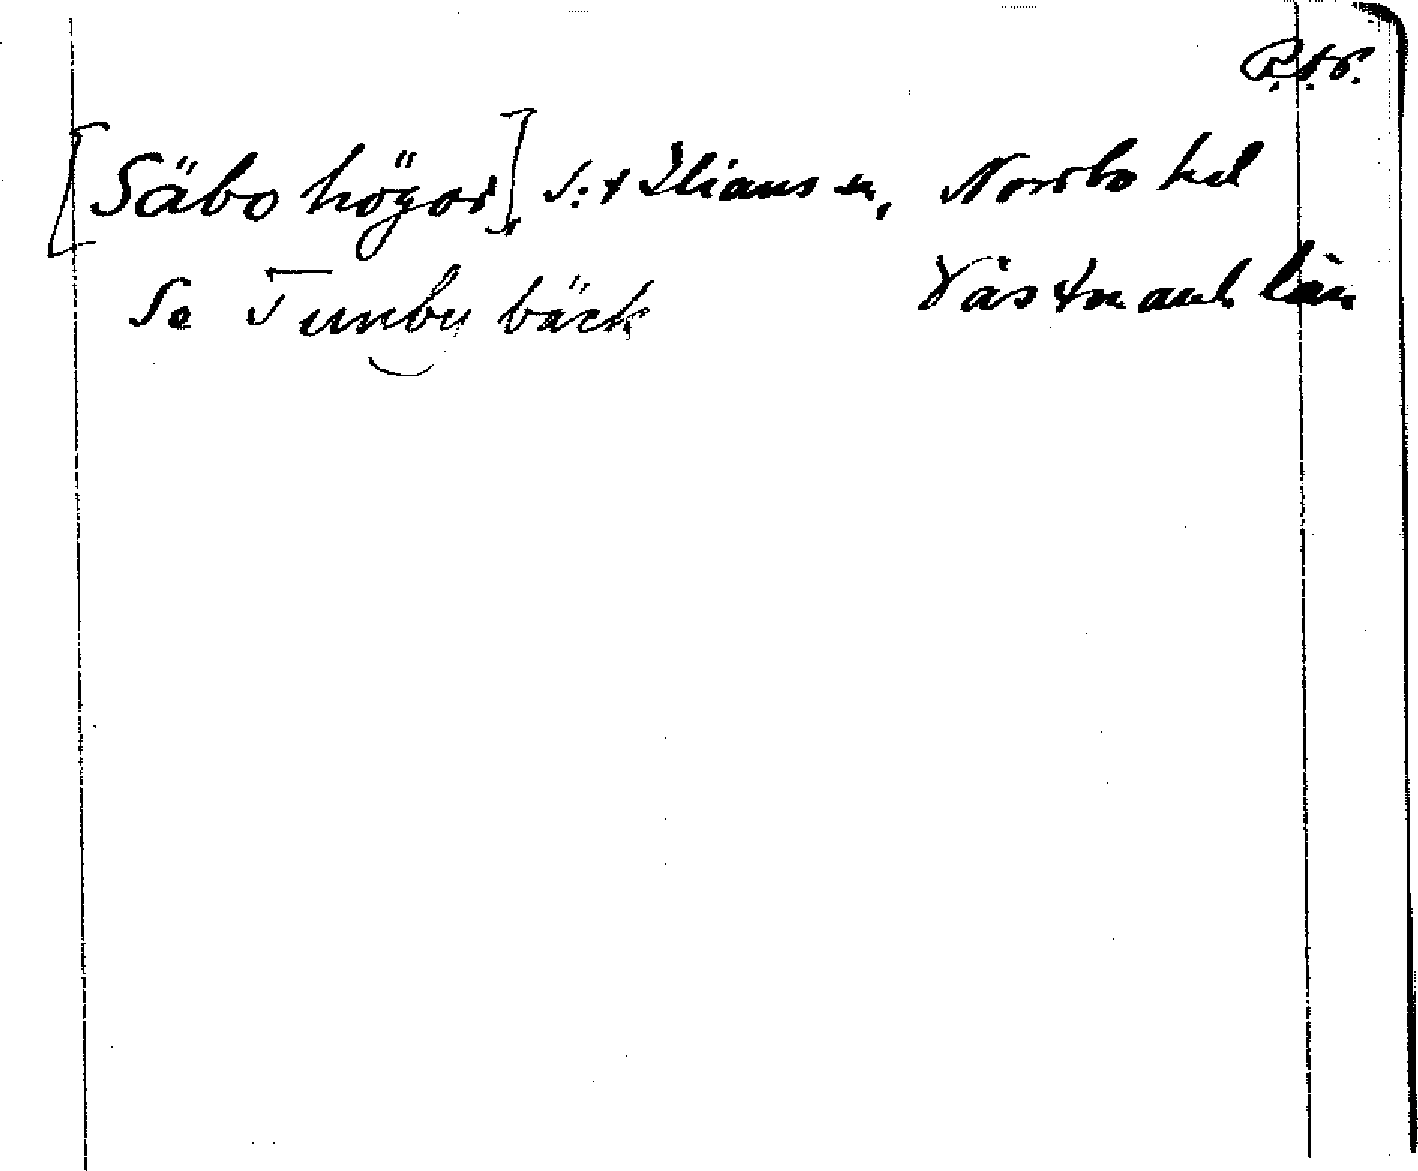 [Säbo högar] S:t Ilians sn, Norrbo hd
Se Tunby bäck Västmanl. län